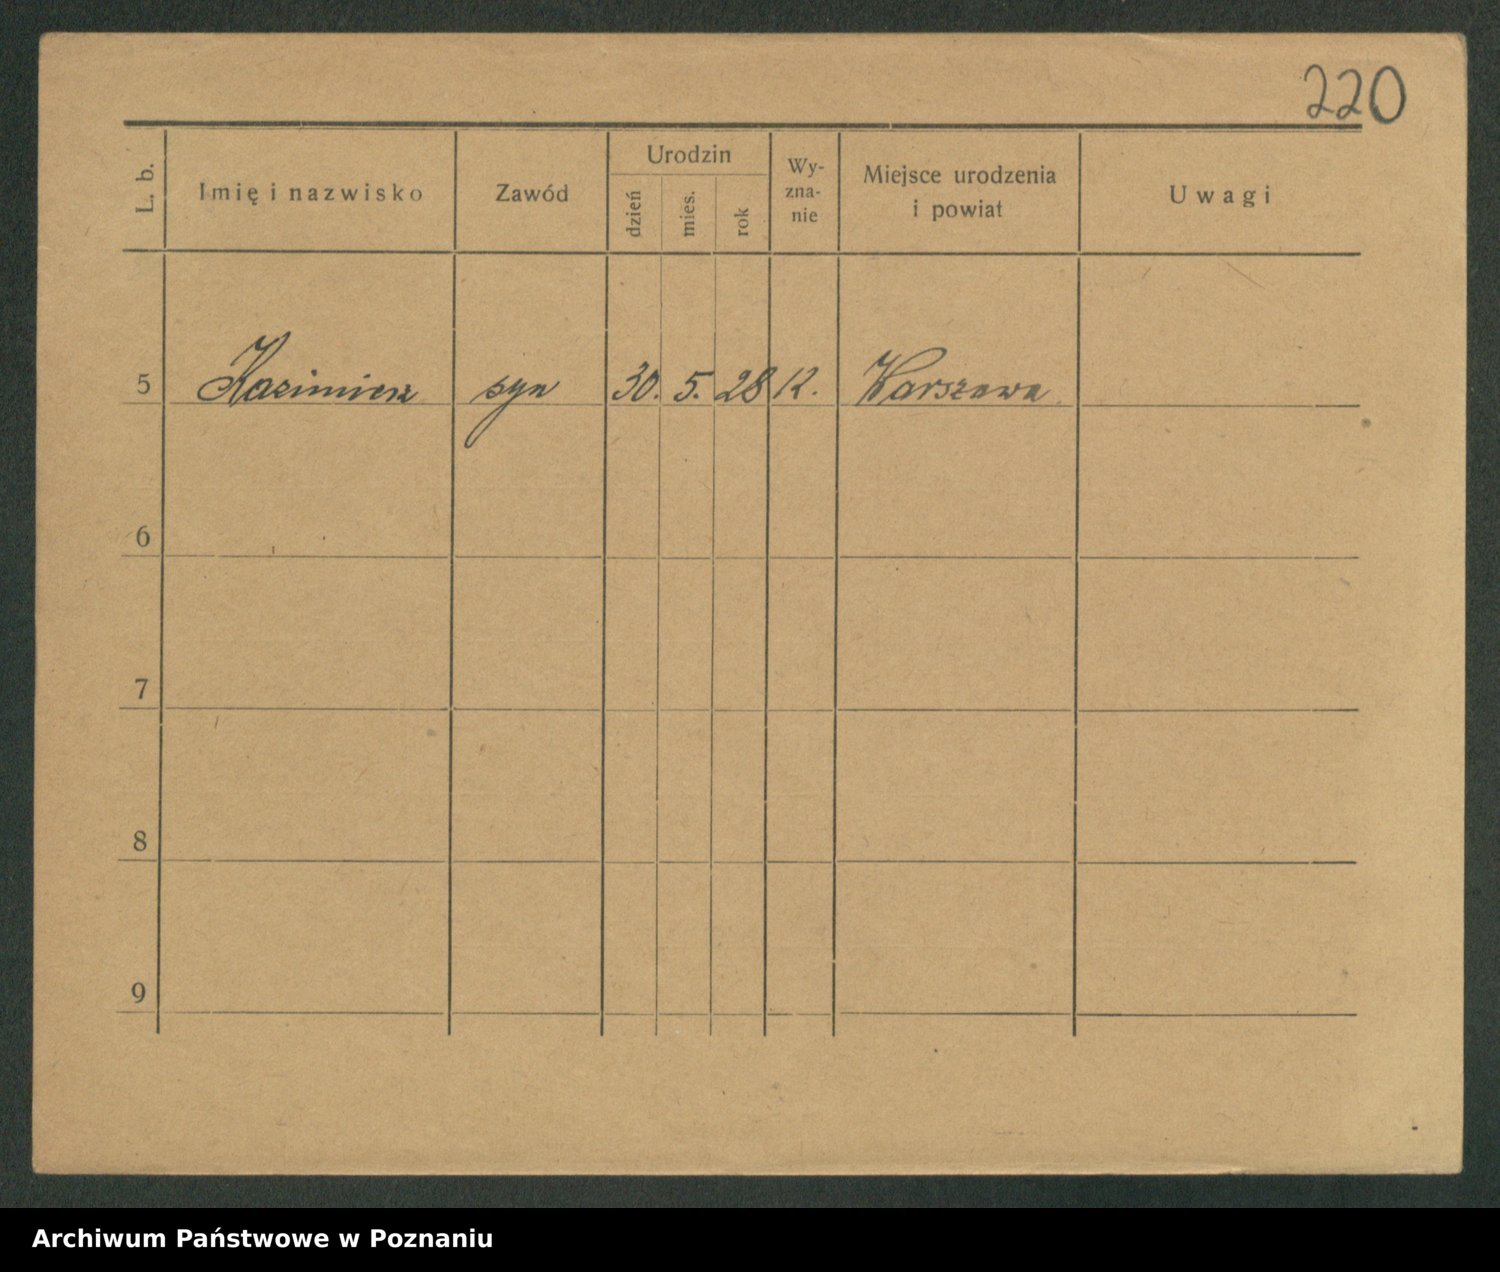 220
L. b.
Imię i nazwisko
Zawód
Urodzin
dzień
mies.
rok
Wy-
zna-
nie
Miejsce urodzenia
i powiat
Uwagi
5 Kazimierz syn 30. 5. 28 K. Warszawa
6
7
8
9
Archiwum Państwowe w Poznaniu